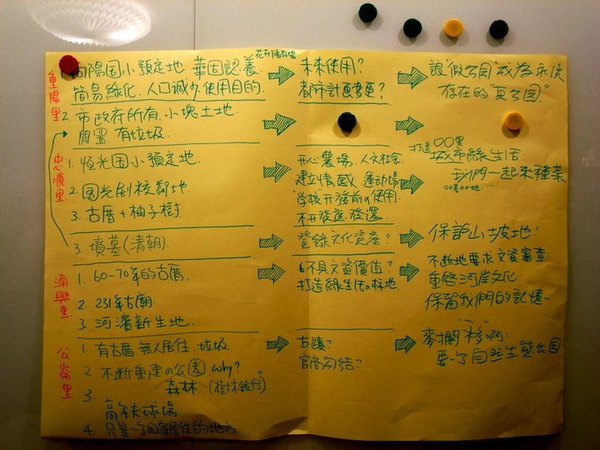 花卉廣場
重陽里
1. 向陽國小預定地 華固認養
簡易綠化, 人口減少, 使用目的.
未來使用?
都市計畫變更?
讓"假公園"成為永俟
存在的"真公園"
2. 市政府所有 小塊土地
閒置 有垃圾.
中順里
1. 恆光國小預定地.
2. 國光劃 地
3. 古厝+柚子樹
開心農場, 人文社會
建立情感, 運動場
學校開發前の使用.
不開發
打造○○里
城市綠生活
我們一起來種菜
3. 墳墓(清朝)
登錄文化資產?
保護山坡地!
興里
1. 60-70年的古厝.
2. 231年古廟
3. 河濱新生地
不具文資價值?
打造綠生活の
不斷地要求文資審查
重啓河岸文化
保留我們的記憶-
公崙里
1. 有古厝 無人居住, 垃圾
2. 不斷重建の公園 why?
森林 (樹林銀行)
3.
高爾夫球場
4. 只是一個回家居住的地方
古蹟?
官商勾結?
麥擱 啊!
要一个自然生態公園